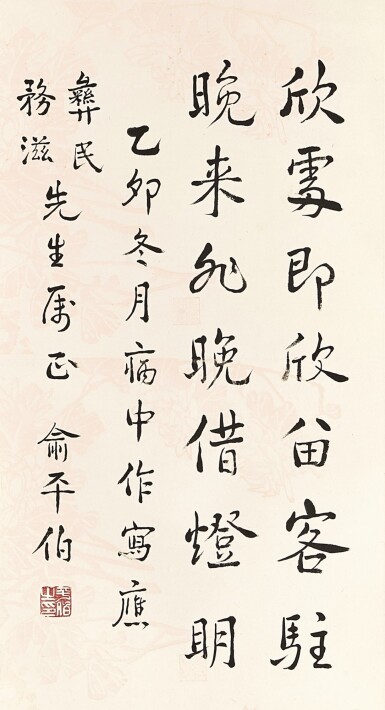 欣處即欣留客駐
晚来非晚借燈明
乙卯冬月病中作寫應
彝民
務滋
先生属正 俞平伯